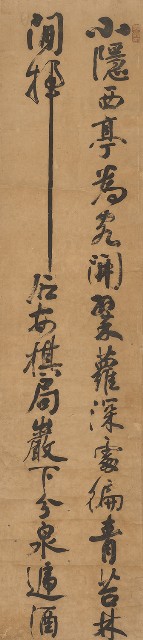 小隱西亭為客開翠蘿深處徧青苔林
間掃石安棋局巖下分泉遞酒